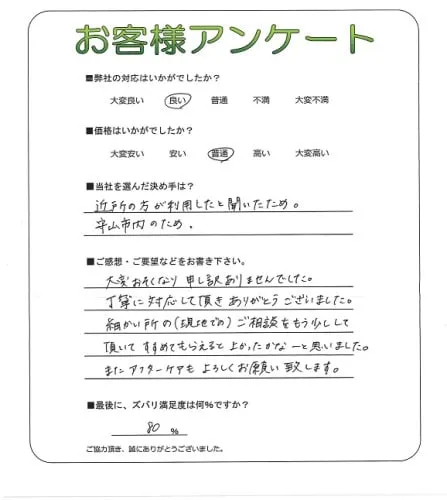 お客様アンケート
■弊社の対応はいかがでしたか？
大変良い 良い 普通 不満 大変不満
■価格はいかがでしたか？
大変安い 安い 普通 高い 大変高い
■当社を選んだ決め手は？
近所の方が利用したと聞いたため。
守山市内のため.
■ご感想・ご要望などをお書き下さい。
大変おそくなり申し訳ありませんでした。
丁寧に対応して頂きありがとうございました。
細かい所の(現地での)ご相談をもう少しして
頂いてすすめてもらえると上かったかなーと思いました。
またアフターケアもよろしくお願い致します。
■最後に、ズバリ満足度は何%ですか？
80 %
ご協力頂き、誠にありがとうございました。